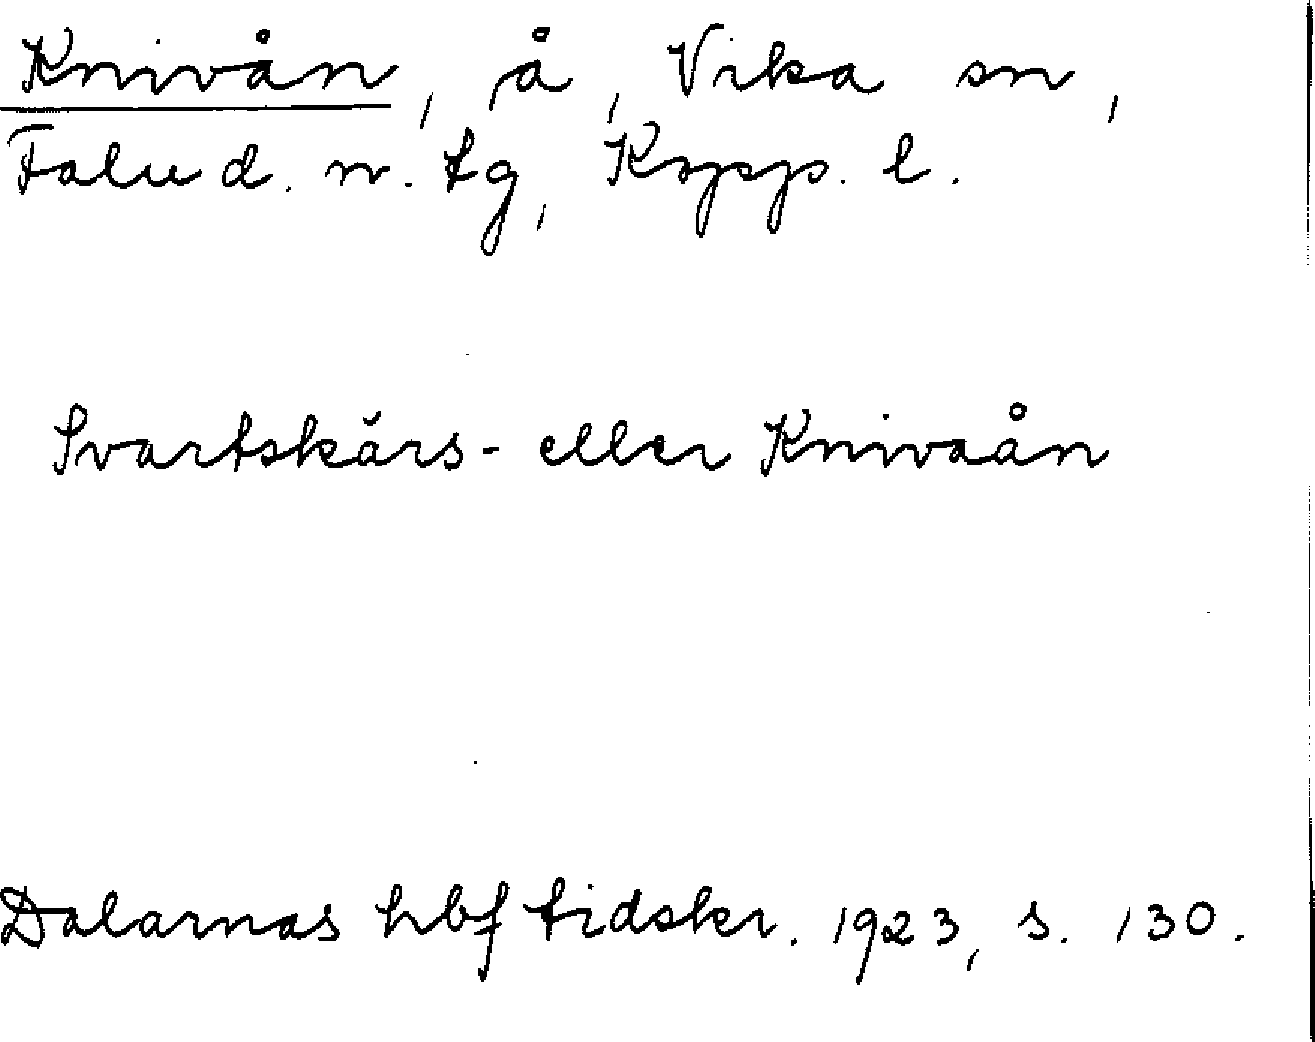 Knivån, å, Vika sn,
Falu d. n. tg, Kopp. l.
Svartskärs- eller Knivaån
Dalarnas hbf tidskr. 1923, s. 130.